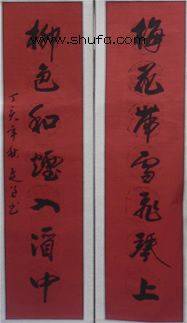 www.shufa.com
梅花帶雪飛琴上
柳色和煙入酒中
丁亥年秋